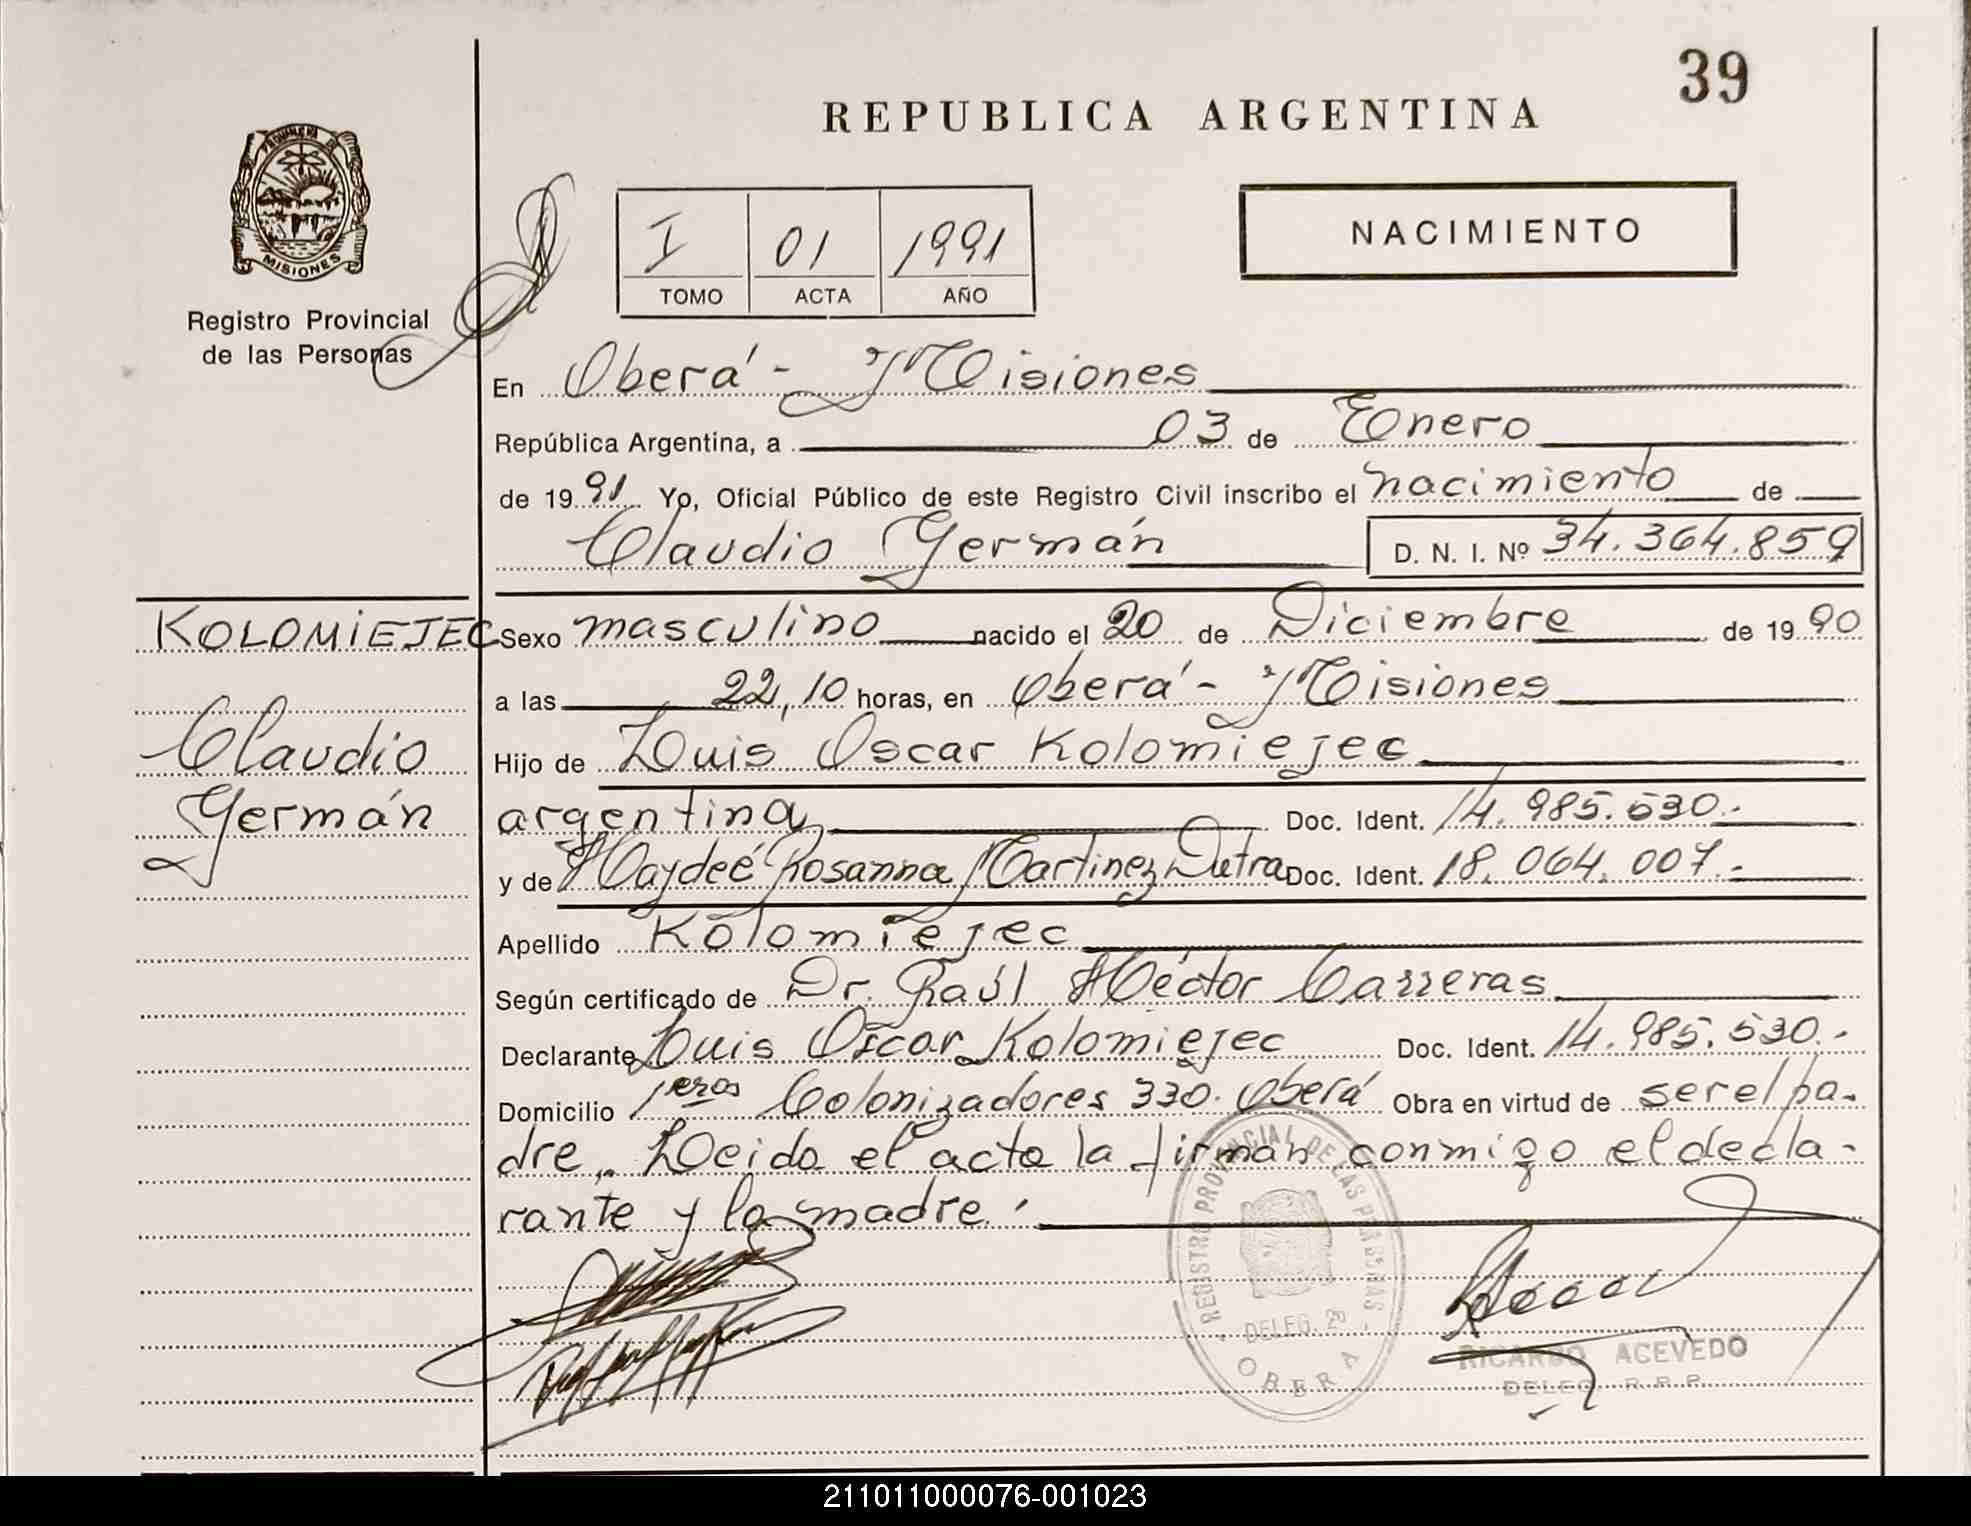 39
REPUBLICA ARGENTINA
PROVINCIA DE
MISIONES
Registro Provincial
de las Personas
I 01 1991
TOMO ACTA AÑO
NACIMIENTO
En Oberá - Misiones
República Argentina, a 03 de Enero
de 1991 Yo, Oficial Público de este Registro Civil inscribo el nacimiento de
Claudio Germán D. N. I. Nº 34.364.859
KOLOMIEJEC
Claudio
Germán
Sexo masculino nacido el 20 de Diciembre de 1990
a las 22,10 horas, en Oberá - Misiones
Hijo de Luis Oscar Kolomiejec
argentina Doc. Ident. 14.985.530.-
y de Haydeé Rosanna Martinez Dutra Doc. Ident. 18.064.007.-
Apellido Kolomiejec
Según certificado de Dr. Raúl Héctor Carreras
Declarante Luis Oscar Kolomiejec Doc. Ident. 14.985.530.-
Domicilio 1eros Colonizadores 330. Oberá Obra en virtud de ser el pa-
dre.. Leida el acta la firman conmigo el decla-
rante y la madre.
REGISTRO PROVINCIAL DE LAS PERSONAS
DELEG. 29
OBERA
RICARDO ACEVEDO
DELEG. R.P.P.
211011000076-001023